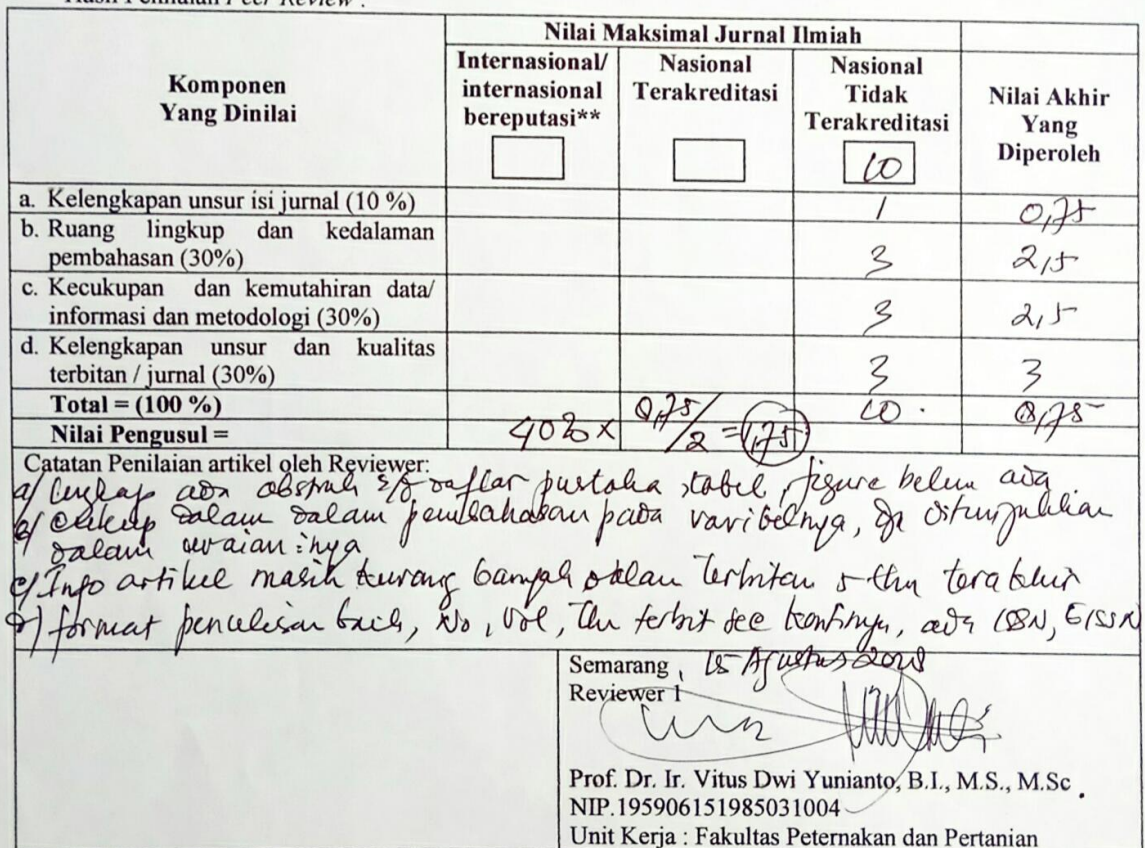 Hasil Penilaian Peer Review :
Nilai Maksimal Jurnal Ilmiah
Komponen
Yang Dinilai
Internasional/
internasional
bereputasi**
Nasional
Terakreditasi
Nasional
Tidak
Terakreditasi
10
Nilai Akhir
Yang
Diperoleh
a. Kelengkapan unsur isi jurnal (10 %) 1 0,75
b. Ruang lingkup dan kedalaman
pembahasan (30%) 3 2,5
c. Kecukupan dan kemutahiran data/
informasi dan metodologi (30%) 3 2,5
d. Kelengkapan unsur dan kualitas
terbitan / jurnal (30%) 3 3
Total = (100 %) 10 8,75
Nilai Pengusul = 40% x 8,75/2 = 1,75
Catatan Penilaian artikel oleh Reviewer:
a/ lengkap ada abstrak s/d daftar pustaka tabel, figure belum ada
b/ cukup dalam dalam pembahasan pada varibelnya,
dalam uraian
c/ Info artikel masih kurang banyak dalam terbitan 5 thn
d/ format penulisan baik, No, Vol, Thn terbit ada ISSN, E ISSN
Semarang, 15 Agustus 2018
Reviewer 1
Prof. Dr. Ir. Vitus Dwi Yunianto, B.I., M.S., M.Sc.
NIP.195906151985031004
Unit Kerja : Fakultas Peternakan dan Pertanian